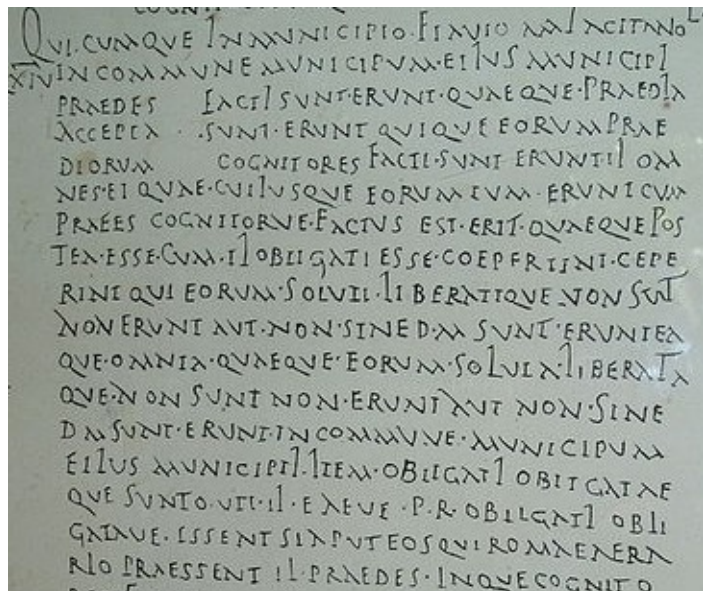 QUI·CUMQUE IN MUNICIPIO·FLAVIO MALACITANO
XIV IN COMMUNE MUNICIPUM·EIIUS MUNICIPI
PRAEDES FACTI SUNT·ERUNT·QUAEQUE·PRAEDIA
ACCEPTA·SUNT·ERUNT QUIQUE EORUM PRAE
DIORUM COGNITORES FACTI·SUNT ERUNT II OM
NES·EI QUAE·CUIIUSQUE EORUM TUM·ERUNT CUM
PRAEES COGNITORVE·FACTUS EST·ERIT·QUAEQUE POS
TEA·ESSE·CUM·II OBLIGATI ESSE·COEPERUNT·CEPE
RINT QUI EORUM·SOLUTI·LIBERATIQUE NON SUNT
NON ERUNT AUT·NON·SINE D·M SUNT·ERUNT EA
QUE·OMNIA·QUAEQUE·EORUM·SOLUTA·LIBERATA
QUE·NON SUNT NON·ERUNT AUT NON·SINE
D M SUNT·ERUNT·IN COMMUNE·MUNICIPUM
EIIUS MUNICIPII·ITEM·OBLIGATI OBLIGATAE
QUE SUNTO·UTI·II·EAEVE·P·R·OBLIGATI OBLI
GATAVE·ESSENT SI APUT EOS QUI ROMAE AERA
RIO PRAESSENT II·PRAEDES·INQUE COGNITO